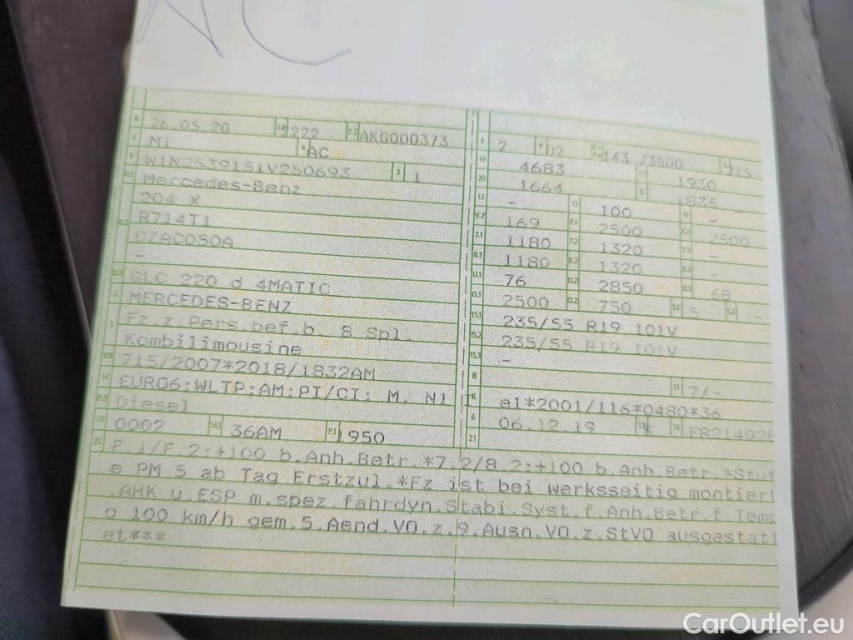 NC
26.05.20 2222 AKG000373
M1 AC
W1N2539151V250693 1
Mercedes-Benz
204 X
R714T1
CZAC050A
-
GLC 220 d 4MATIC
MERCEDES-BENZ
Fz.z.Pers.bef.b. 8 Spl.
Kombilimousine
715/2007*2018/1832AM
EURO6;WLTP;AM;PI/CI; M, N1
Diesel
0002 36AM 1950
2 02 143 /3800
4683 1930
1664 1835
- 100 -
169 2500 2500
1180 1320 -
1180 1320 -
76 2850 68
2500 750 5 -
235/55 R19 101V
235/55 R19 101V
-
7/-
e1*2001/116*0480*36
06.12.19 K
F.1/F.2:+100 b.Anh.Betr.*7.2/8.2:+100 b.Anh.Betr.*Stuf
e PM 5 ab Tag Erstzul.*Fz ist bei werksseitig montiert
AHK u.ESP m.spez.fahrdyn.Stabi.Syst.f.Anh.Betr.f.Temp
o 100 km/h gem.5.Aend.VO.z.9.Ausn.VO.z.StVO ausgestatt
et***
CarOutlet.eu